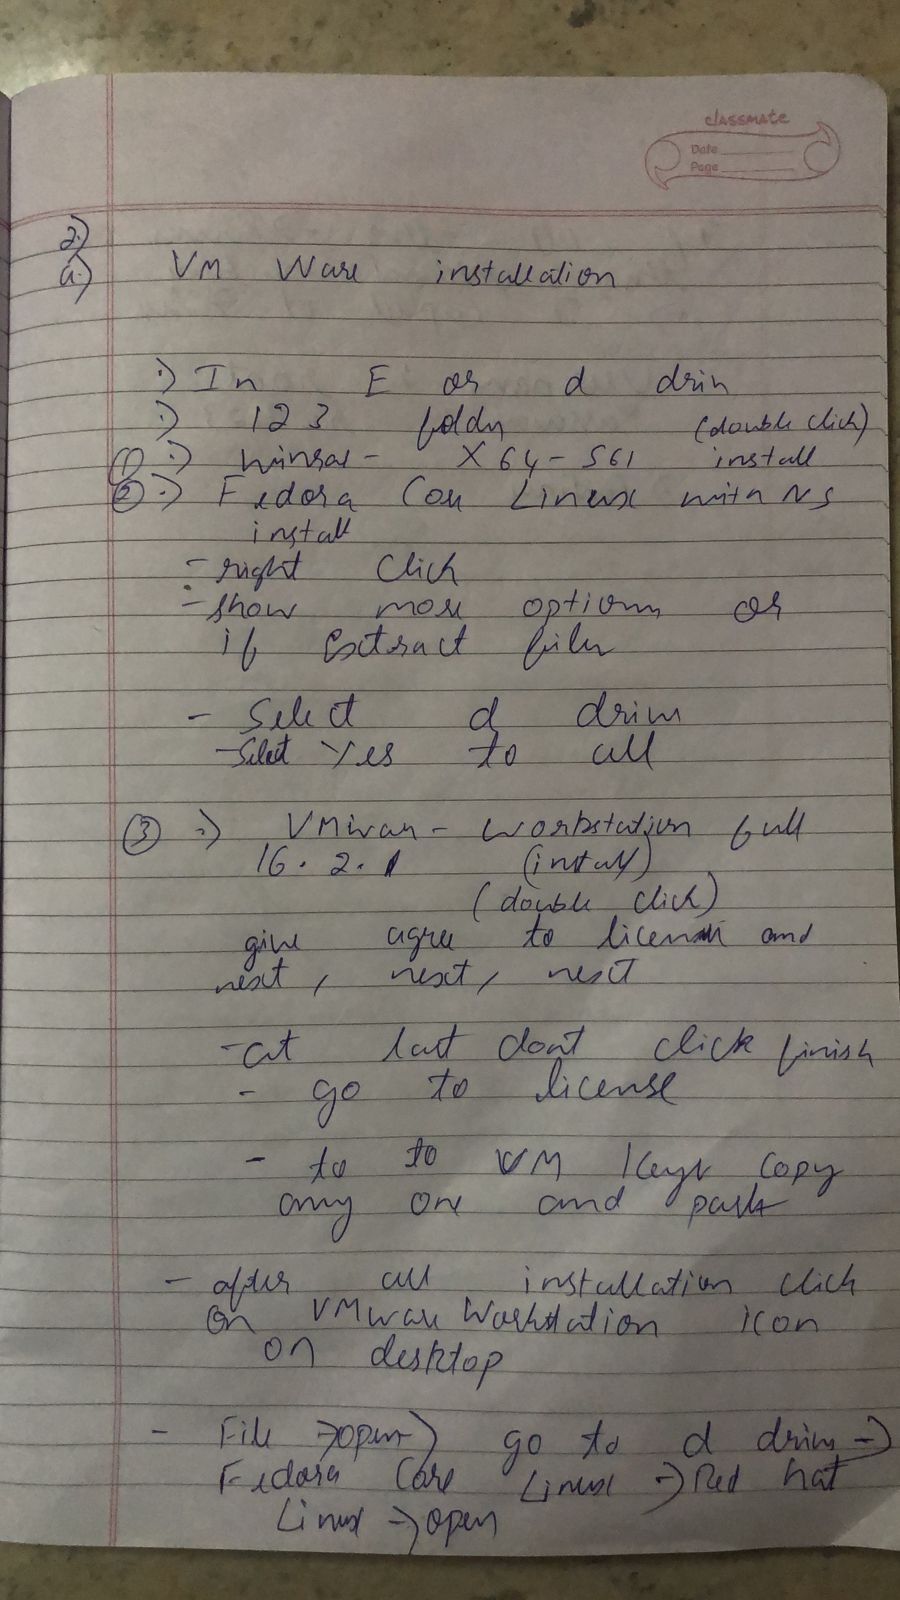 classmate
Date
Page
2)
a) VM Ware installation
·) In E or d driv
·) 123 foldr (double click)
(1) ·) winrar - X64-561 install
(2) ·) Fedora Core Linux with NS
install
- right click
- show more options or
if extract files
- Select d drive
- Select Yes to all
(3) ·) VMware - workstation full
16.2.1 (install)
(double click)
give agree to license and
next, next, next
- at last dont click finish
- go to license
- to to VM Keys copy
any one and paste
- after all installation click
on VMware Workstation icon
on desktop
- File → open → go to d drive →
Fedora Core Linux → Red hat
Linux → open